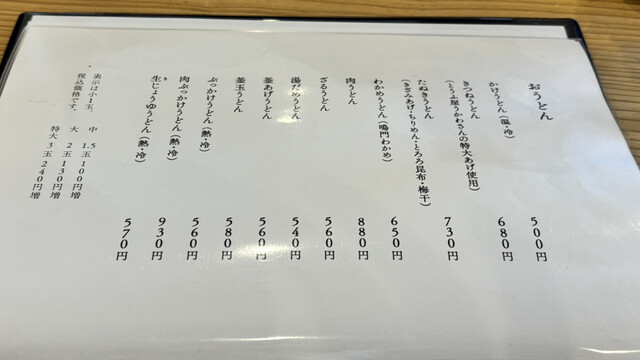 おうどん
かけうどん（温・冷） 500円
きつねうどん 680円
（とうふ屋うかわさんの特大あげ使用）
たぬきうどん 730円
（きざみあげ・ちりめん・とろろ昆布・梅干）
わかめうどん（鳴門わかめ） 650円
肉うどん 880円
ざるうどん 560円
湯だめうどん 540円
釜あげうどん 560円
釜玉うどん 580円
ぶっかけうどん（熱・冷） 560円
肉ぶっかけうどん（熱・冷） 930円
き
生じょうゆうどん（熱・冷） 570円
表示は小1玉、 中 1.5玉 100円増
税込価格です。 大 2玉 130円増
特大 3玉 240円増